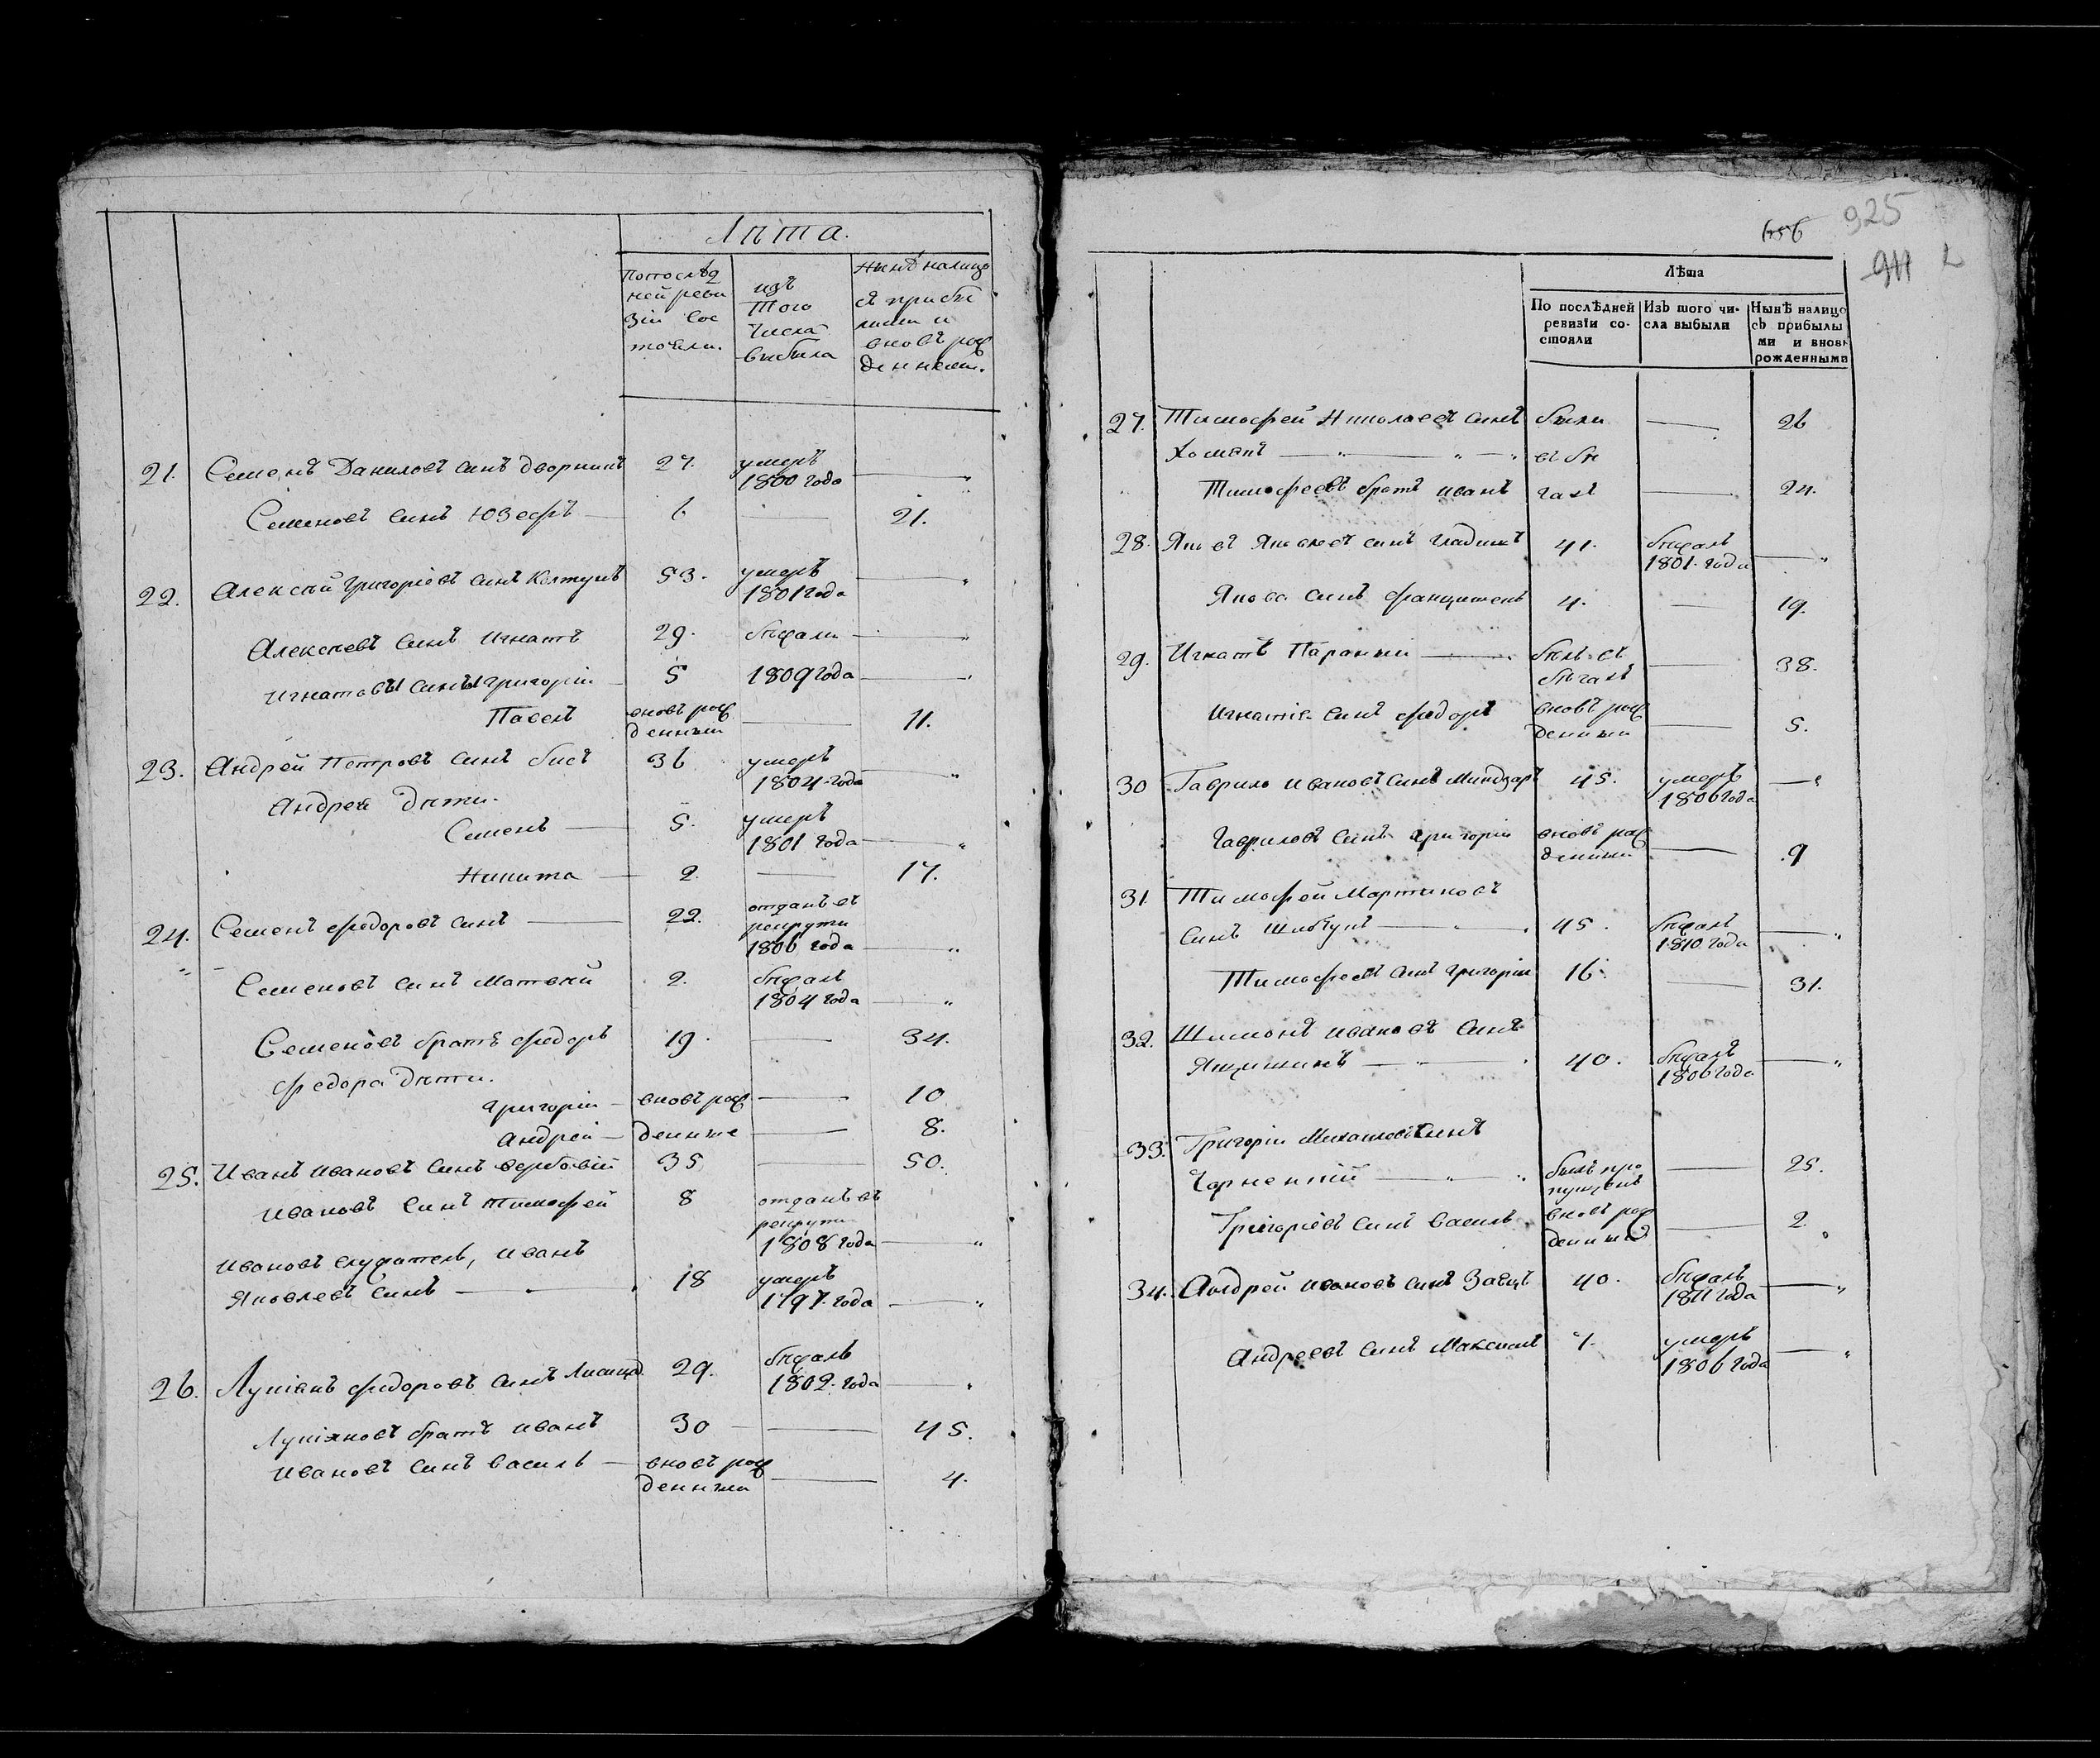 Лѣта.
По послѣд
ней реви
зіи сос
тояли.
изъ
того
числа
выбыла
Нынѣ налицо
съ прибы
лыми и
вновь рож
денными.
21. Семенъ Даниловъ синъ Дворникъ 27. умеръ
1800 года — „
Семеновъ синъ Юзефъ — 6 — 21.
22. Алексѣй Григоріевъ синъ Колтунъ 53. умеръ — „
1801 года
Алексѣевъ синъ Игнатъ 29. бѣжали — „
Игнатовы сины Григорій — 5 1809 года — „
Павелъ вновь рож
денный — 11.
23. Андрей Петровъ синъ бисъ 36 умеръ
1804 года — „
Андрея Дѣти.
Семенъ — 5. умеръ
1801 года — „
Никита — 2. — 17.
24. Семенъ Федоровъ синъ — 22. отданъ въ
рекруты
1806 года — „
Семеновъ синъ Матвѣй 2. бѣжалъ
1804 года — „
Семеновъ братъ Федоръ 19. — 34.
Федора Дѣти.
Григорій — вновь рож — 10
Андрей — денные — 8.
25. Иванъ Ивановъ синъ Вербовій 35 — 50.
Ивановъ синъ Тимофей 8 отданъ въ
рекруты
1808 года — „
Ивановъ служатель, Иванъ
Яковлевъ синъ — 18 умеръ
1797 года — „
26. Лукіянъ Федоровъ синъ Лисица 29. бѣжалъ
1802 года — „
Лукіяновъ братъ Иванъ 30 — 45.
Ивановъ синъ Василь — вновь рож
денный — 4.
656 925
911
Лѣта
По послѣдней
ревизіи со-
стояли
Изъ того чи-
сла выбыли
Нынѣ налицо
съ прибылы
ми и вновь
рожденными
27. Тимофей Николаевъ синъ были — 26
Хоманъ — „ — „ — „ въ бѣ
Тимофеевъ братъ Иванъ гахъ — 24.
28. Яковъ Яковлевъ синъ Гладишъ 41. бѣжалъ
1801 года — „
Якова синъ Францишекъ 4. — 19.
29. Игнатъ Паранчи — былъ въ
бѣгахъ — 38.
Игнатія синъ Федоръ вновь рож
денный — 5.
30 Гаврило Ивановъ синъ Миндзаръ 45. умеръ
1806 года — „
Гавриловъ синъ Григорій вновь рож
денный — 9
31 Тимофей Мартиновъ
синъ Шибунъ — „ 45. бѣжалъ
1810 года — „
Тимофеевъ синъ Григорій 16. — 31.
32. Шимонъ Ивановъ синъ
Ящишинъ — „ 40. бѣжалъ
1806 года — „
33. Григорій Михаиловъ синъ
Чорненкій — „ былъ про
пущенъ — 25.
Григоріевъ синъ Василь вновь рож
денный — 2
34. Андрей Ивановъ синъ Заецъ 40. бѣжалъ
1811 года — „
Андреевъ синъ Максимъ 7. умеръ
1806 года — „